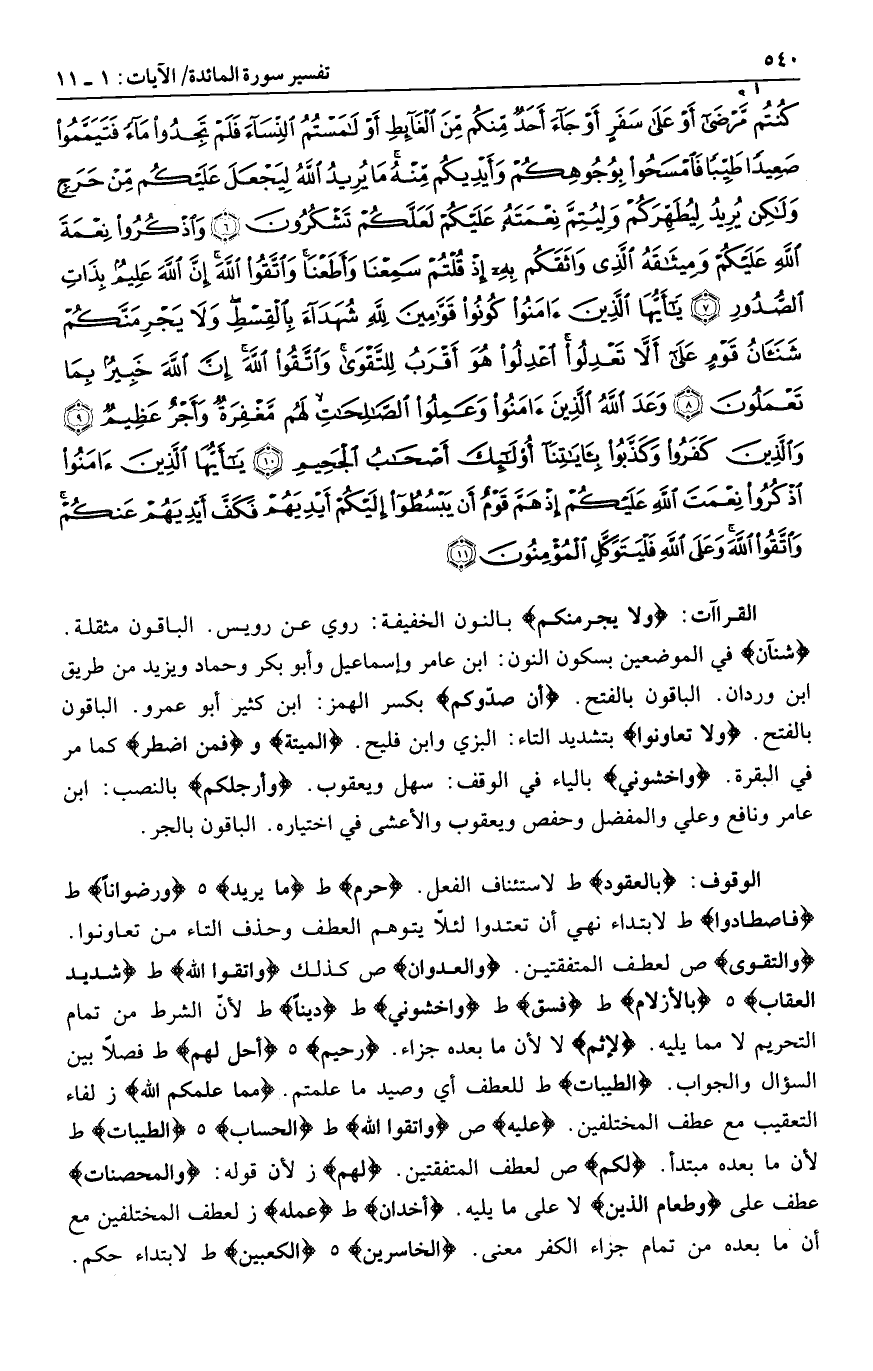 ٥٤٠
تفسير سورة المائدة/ الآيات: ١ ـ ١١
كُنتُم مَّرْضَىٰٓ أَوْ عَلَىٰ سَفَرٍ أَوْ جَآءَ أَحَدٌ مِّنكُم مِّنَ ٱلْغَآئِطِ أَوْ لَٰمَسْتُمُ ٱلنِّسَآءَ فَلَمْ تَجِدُوا۟ مَآءً فَتَيَمَّمُوا۟
صَعِيدًا طَيِّبًا فَٱمْسَحُوا۟ بِوُجُوهِكُمْ وَأَيْدِيكُم مِّنْهُ ۚ مَا يُرِيدُ ٱللَّهُ لِيَجْعَلَ عَلَيْكُم مِّنْ حَرَجٍ
وَلَٰكِن يُرِيدُ لِيُطَهِّرَكُمْ وَلِيُتِمَّ نِعْمَتَهُۥ عَلَيْكُمْ لَعَلَّكُمْ تَشْكُرُونَ ﴿٦﴾ وَٱذْكُرُوا۟ نِعْمَةَ
ٱللَّهِ عَلَيْكُمْ وَمِيثَٰقَهُ ٱلَّذِى وَاثَقَكُم بِهِۦٓ إِذْ قُلْتُمْ سَمِعْنَا وَأَطَعْنَا ۖ وَٱتَّقُوا۟ ٱللَّهَ ۚ إِنَّ ٱللَّهَ عَلِيمٌۢ بِذَاتِ
ٱلصُّدُورِ ﴿٧﴾ يَٰٓأَيُّهَا ٱلَّذِينَ ءَامَنُوا۟ كُونُوا۟ قَوَّٰمِينَ لِلَّهِ شُهَدَآءَ بِٱلْقِسْطِ ۖ وَلَا يَجْرِمَنَّكُمْ
شَنَـَٔانُ قَوْمٍ عَلَىٰٓ أَلَّا تَعْدِلُوا۟ ۚ ٱعْدِلُوا۟ هُوَ أَقْرَبُ لِلتَّقْوَىٰ ۖ وَٱتَّقُوا۟ ٱللَّهَ ۚ إِنَّ ٱللَّهَ خَبِيرٌۢ بِمَا
تَعْمَلُونَ ﴿٨﴾ وَعَدَ ٱللَّهُ ٱلَّذِينَ ءَامَنُوا۟ وَعَمِلُوا۟ ٱلصَّٰلِحَٰتِ ۙ لَهُم مَّغْفِرَةٌ وَأَجْرٌ عَظِيمٌ ﴿٩﴾
وَٱلَّذِينَ كَفَرُوا۟ وَكَذَّبُوا۟ بِـَٔايَٰتِنَآ أُو۟لَٰٓئِكَ أَصْحَٰبُ ٱلْجَحِيمِ ﴿١٠﴾ يَٰٓأَيُّهَا ٱلَّذِينَ ءَامَنُوا۟
ٱذْكُرُوا۟ نِعْمَتَ ٱللَّهِ عَلَيْكُمْ إِذْ هَمَّ قَوْمٌ أَن يَبْسُطُوٓا۟ إِلَيْكُمْ أَيْدِيَهُمْ فَكَفَّ أَيْدِيَهُمْ عَنكُمْ ۖ
وَٱتَّقُوا۟ ٱللَّهَ ۚ وَعَلَى ٱللَّهِ فَلْيَتَوَكَّلِ ٱلْمُؤْمِنُونَ ﴿١١﴾
القراآت: ﴿ولا يجرمنكم﴾ بالنون الخفيفة: روي عن رويس. الباقون مثقلة.
﴿شنآن﴾ في الموضعين بسكون النون: ابن عامر وإسماعيل وأبو بكر وحماد ويزيد من طريق
ابن وردان. الباقون بالفتح. ﴿أن صدّوكم﴾ بكسر الهمز: ابن كثير أبو عمرو. الباقون
بالفتح. ﴿ولا تعاونوا﴾ بتشديد التاء: البزي وابن فليح. ﴿الميتة﴾ و ﴿فمن اضطر﴾ كما مر
في البقرة. ﴿واخشوني﴾ بالياء في الوقف: سهل ويعقوب. ﴿وأرجلكم﴾ بالنصب: ابن
عامر ونافع وعلي والمفضل وحفص ويعقوب والأعشى في اختياره. الباقون بالجر.
الوقوف: ﴿بالعقود﴾ ط لاستئناف الفعل. ﴿حرم﴾ ط ﴿ما يريد﴾ ٥ ﴿ورضواناً﴾ ط
﴿فاصطادوا﴾ ط لابتداء نهي أن تعتدوا لئلاّ يتوهم العطف وحذف التاء من تعاونوا.
﴿والتقوى﴾ ص لعطف المتفقتين. ﴿والعدوان﴾ ص كذلك ﴿واتقوا الله﴾ ط ﴿شديد
العقاب﴾ ٥ ﴿بالأزلام﴾ ط ﴿فسق﴾ ط ﴿واخشوني﴾ ط ﴿ديناً﴾ ط لأنّ الشرط من تمام
التحريم لا مما يليه. ﴿لإثم﴾ لا لأن ما بعده جزاء. ﴿رحيم﴾ ٥ ﴿أحل لهم﴾ ط فصلاً بين
السؤال والجواب. ﴿الطيبات﴾ ط للعطف أي وصيد ما علمتم. ﴿مما علمكم الله﴾ ز لفاء
التعقيب مع عطف المختلفين. ﴿عليه﴾ ص ﴿واتقوا الله﴾ ط ﴿الحساب﴾ ٥ ﴿الطيبات﴾ ط
لأن ما بعده مبتدأ. ﴿لكم﴾ ص لعطف المتفقتين. ﴿لهم﴾ ز لأن قوله: ﴿والمحصنات﴾
عطف على ﴿وطعام الذين﴾ لا على ما يليه. ﴿أخدان﴾ ط ﴿عمله﴾ ز لعطف المختلفين مع
أن ما بعده من تمام جزاء الكفر معنى. ﴿الخاسرين﴾ ٥ ﴿الكعبين﴾ ط لابتداء حكم.